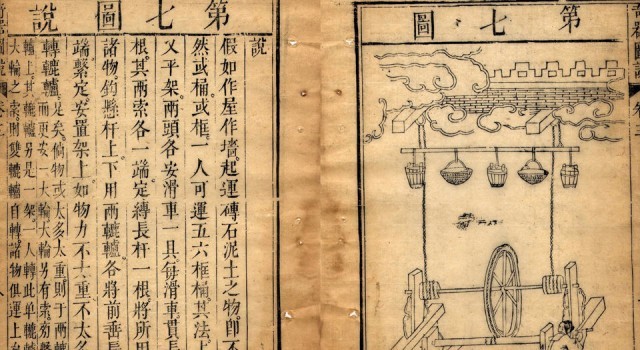 第七圖
第七圖說
說
假如作屋作墻起運磚石泥土之物即不
然或桶或框一人可運五六框桶其法上
又平架兩頭各安滑車一具每滑車貫長
根其兩索各一端定縛長杆一根將所用
諸物鈎懸杆上下用兩轆轤各將前垂長
端繫定安置架上如物力不大重不太多
轉轆轤足矣倘物或太多太重則于兩轆
而更安一大輪大輪另有索
轤上其轆轤另是一架一人轉此單轆轤
大輪之索則雙轆轤自轉諸物俱運上